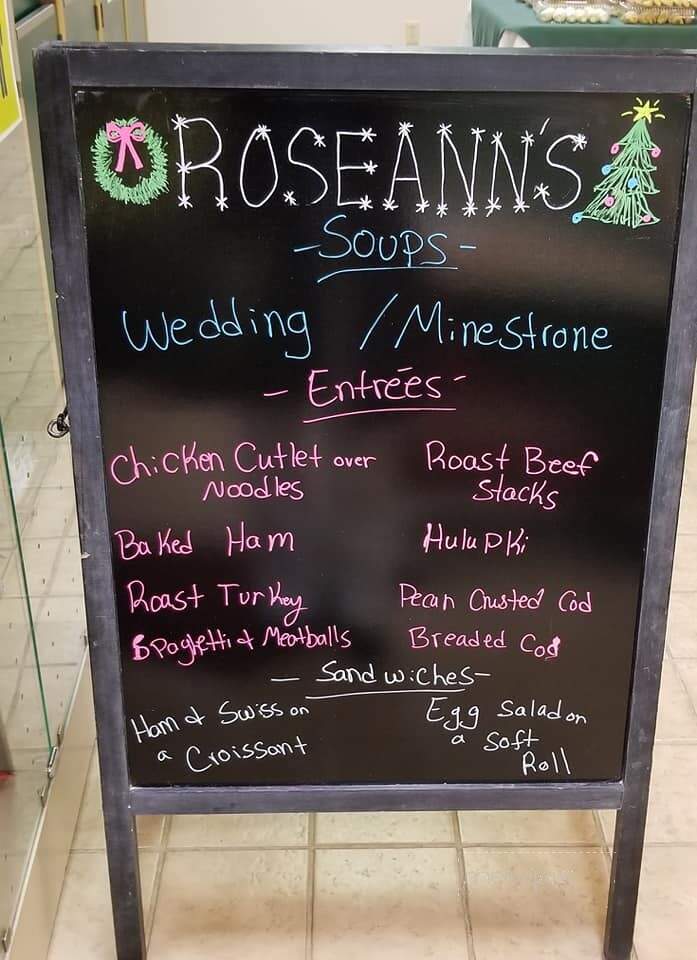 ROSEANN'S
- Soups -
Wedding / Minestrone
- Entrées -
Chicken Cutlet over
Noodles
Roast Beef
Stacks
Baked Ham
Hulupki
Roast Turkey
Pecan Crusted Cod
Spaghetti & Meatballs
Breaded Cod
- Sandwiches -
Ham & Swiss on
a Croissant
Egg Salad on
a Soft
Roll